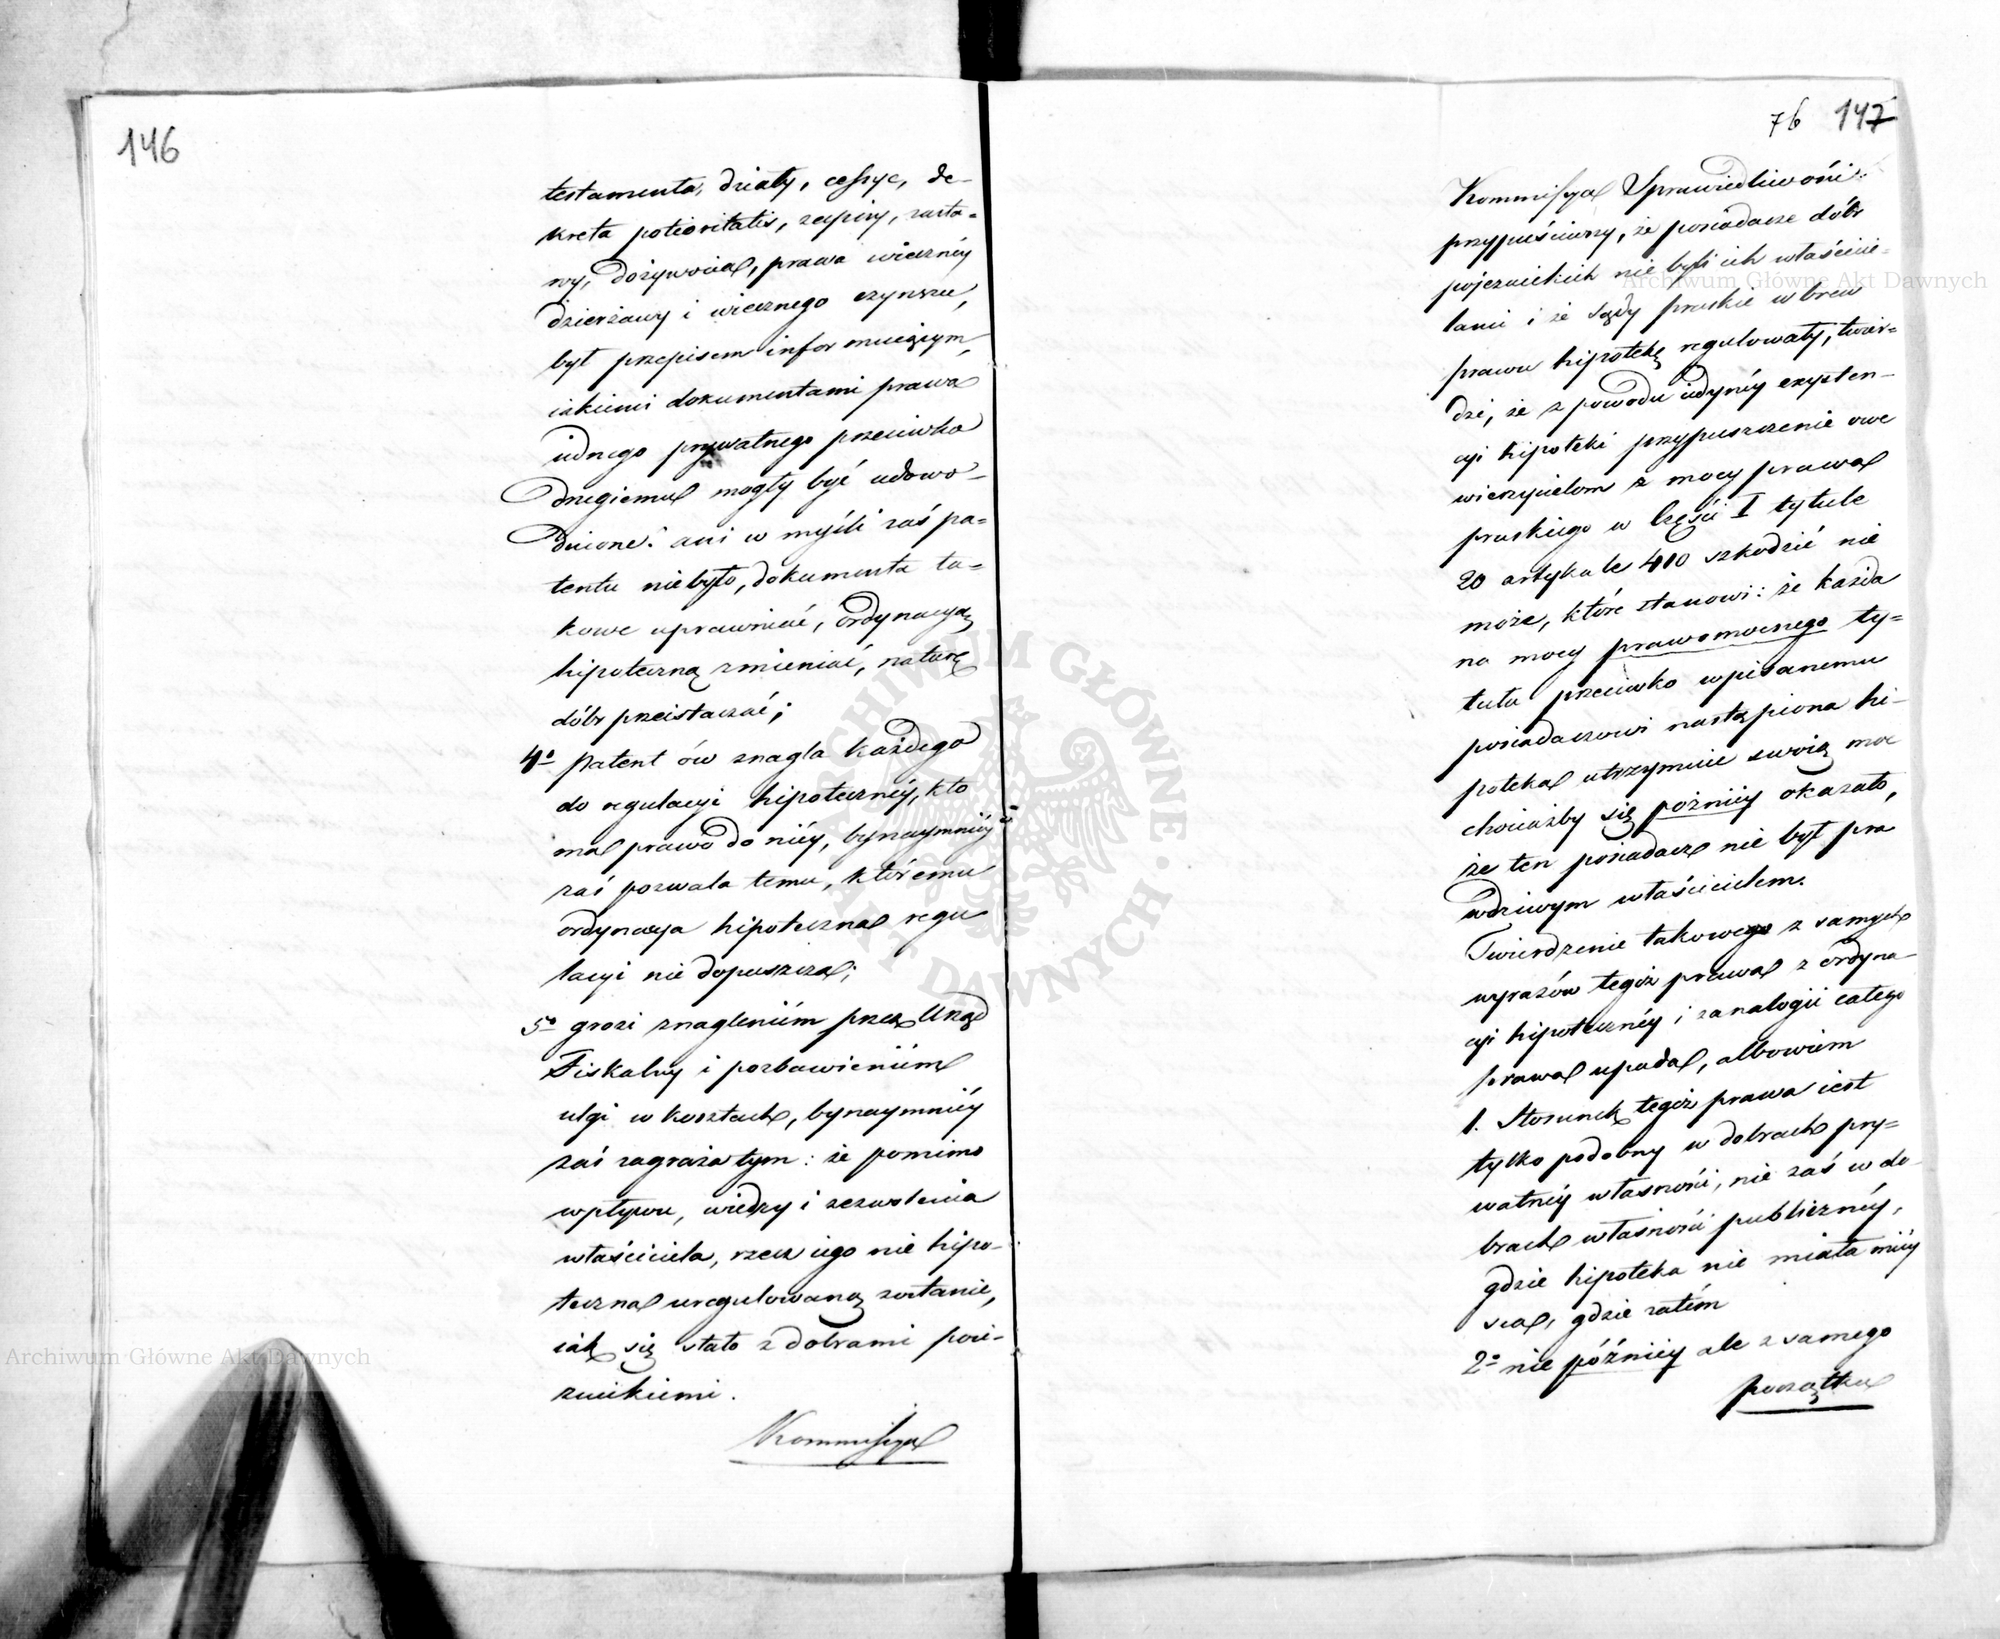 146
testamenta, działy, cessye, de-
kreta potioritatis, zapisy, zasta-
wy, dożywocia, prawa wieczney
dzierżawy i wiecznego czynszu,
był przepisem informuiącym,
iakiemi dokumentami prawa
iednego prywatnego przeciwko
drugiemu mogły być udowo-
dnione: ani w myśli zaś pa-
tentu niebyło, dokumenta ta-
kowe uprawniać, ordynacyą
hipoteczną zmieniać, naturę
dóbr przeistaczać;
4o patent ów znagla każdego
do regulacyi hipoteczney, kto
ma prawo do niéy, bynaymniéy
zaś pozwala temu, któremu
ordynacya hipoteczna regu
lacyi nie dopuszcza;
5o grozi znagleniém przez Urząd
Fiskalny i pozbawieniém
ulgi w kosztach, bynaymniéy
zaś zagraża tym: że pomimo
wpływu, wiedzy i zezwolenia
właściciela, rzecz iego nie hipo-
teczna uregulowaną zostanie,
iak się stało z dobrami poie-
zuickiemi.
Kommissya
76 147
Kommissya Sprawiedliwości
przypuściwszy, że posiadacze dóbr
pojezuickich nie byli ich właścicie-
lami i że sądy pruskie wbrew
prawu hipotekę regulowały, twier-
dzi, że z powodu iedynéy exysten-
cyi hipoteki przypuszczenie owe
wierzycielom z mocy prawa
pruskiego w Części I tytule
20 artykule 410 szkodzić nie
może, które stanowi: że każda
na mocy prawomocnego ty-
tułu przeciwko wpisanemu
posiadaczowi nastąpiona hi-
poteka utrzymuie swoią moc
chociażby się poźniéy okazało,
że ten posiadacz nie był pra
wdziwym właścicielem.
Twierdzenie takowe z samych
wyrazów tegoż prawa z ordyna-
cyi hipotecznéy i z analogii całego
prawa upada, albowiem
1. Stosunek tegoż prawa iest
tylko podobny w dobrach pry-
watnéy własności, nie zaś w do-
brach własności publicznéy,
gdzie hipoteka nie miała miey
sca, gdzie zatém
2o nie późniéy ale z samego
początku